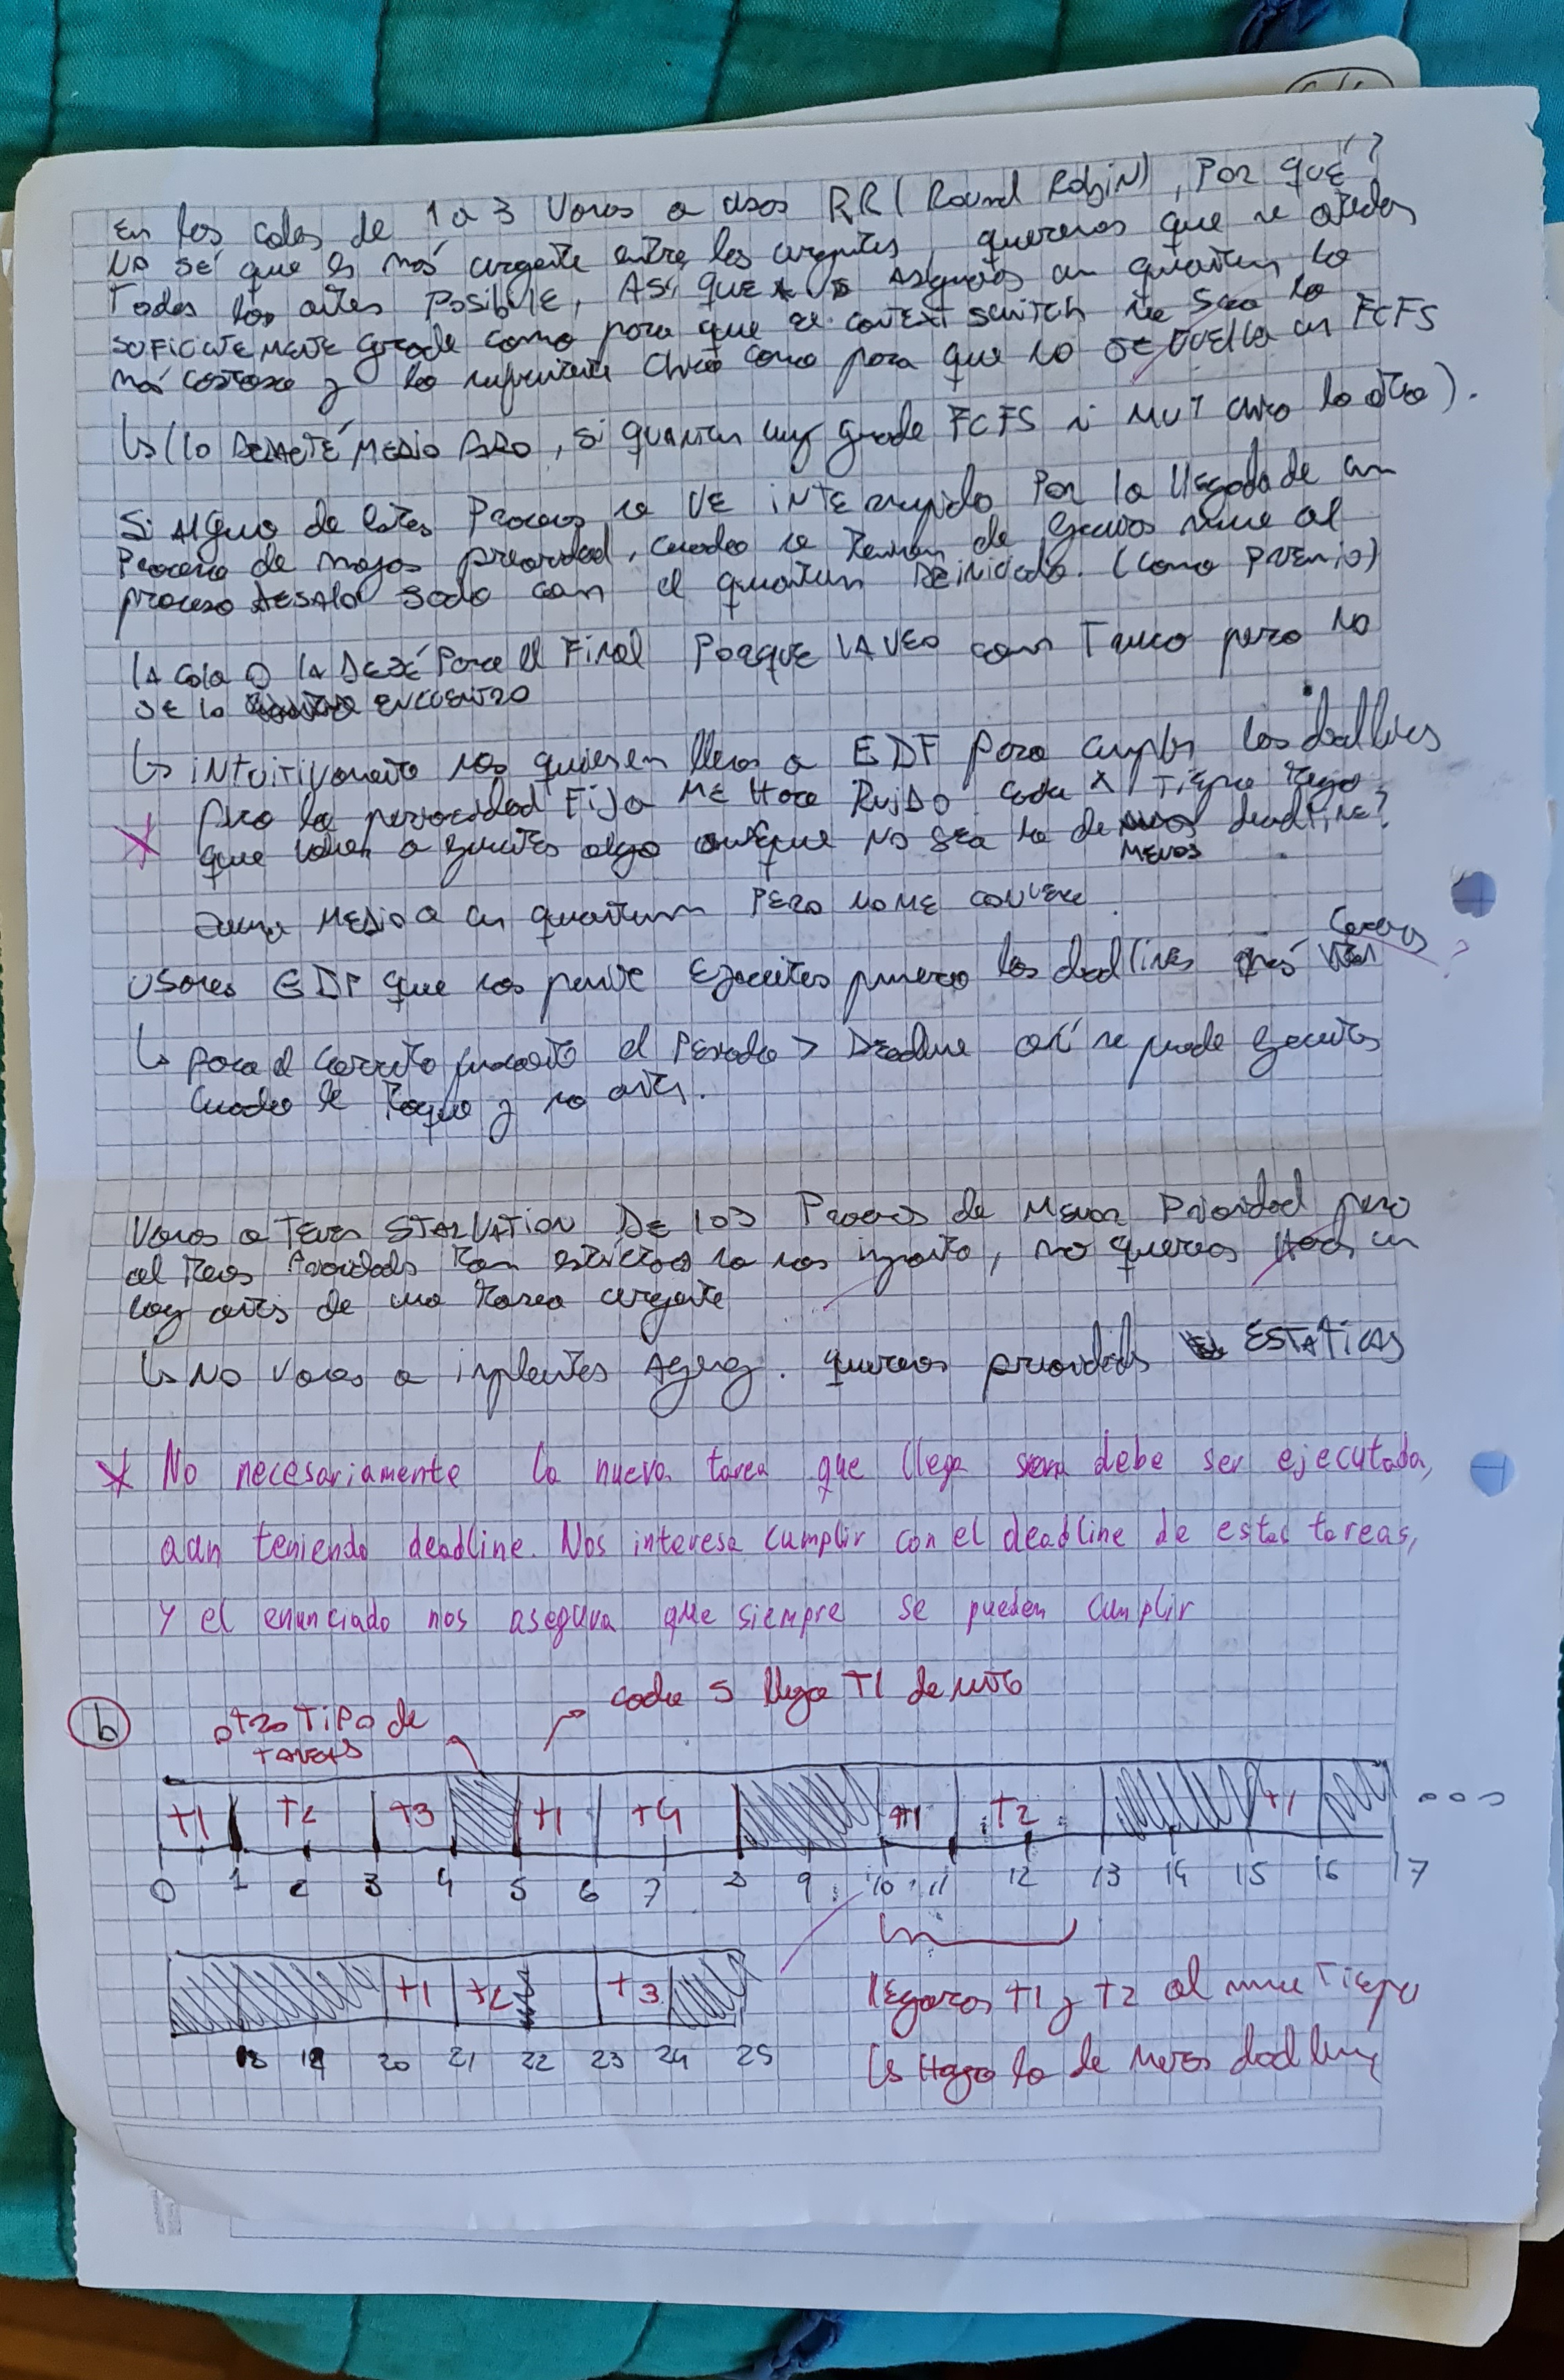 En las colas de 1 a 3 Vamos a usar RR (Round Robin), Por qué?
NO SÉ que es más urgente entre los urgentes, queremos que se atiendan
Todos los antes POSIBLE, ASÍ QUE asignamos un quantum lo
SUFICIENTEMENTE grande como para que el context switch no sea lo
más costoso y lo suficiente chico como para que no SE VUELVA un FCFS
↳ (lo REDACTÉ MEDIO RARO, si quantum muy grande FCFS si MUY chico lo otro).
Si Alguno de estos Procesos se VE INTErrumpido Por la llegada de un
Proceso de mayor prioridad, cuando se termine de ejecutar vuelve al
proceso desalojado con el quantum REINICIADO. (como PREMIO)
LA cola 0 LA DEJÉ Para el Final PORQUE LA VEO con Truco pero no
SE lo ENCUENTRO
↳ INTUITIVAMENTE nos quieren llevar a EDF para cumplir los deadlines
Pero la periocidad FIJA ME Hace RUIDO cada X Tiempo tengo
que volver a ejecutar algo aunque NO SEA lo de MENOS deadline?
MEDIO a un quantum PERO NO ME CONVENCE
USAREMOS EDF que nos permite Ejecutar primero los deadlines más Cercanos ?
↳ para el correcto funcionamiento el Período > Deadline así se puede ejecutar
Cuando le Toque y no antes.
Vamos a Tener STARVATION DE los Procesos de MENOR Prioridad pero
al tener Prioridades tan estrictas no nos importa, no queremos un
log antes de una tarea urgente
↳ No Vamos a implementar Aging. queremos prioridades ESTATICAS
* No necesariamente la nueva tarea que llega debe ser ejecutada,
aun teniendo deadline. Nos interesa cumplir con el deadline de estas tareas,
Y el enunciado nos asegura que siempre se pueden cumplir
cada 5 llega T1 de nuevo
b otro TIPO de
tareas
T1 T2 T3 T1 T4 T1 T2 T1
0 1 2 3 4 5 6 7 8 9 10 11 12 13 14 15 16 17
T1 T2 T3
18 19 20 21 22 23 24 25
llegaron T1 y T2 al mismo Tiempo
↳ Hago la de menor deadline